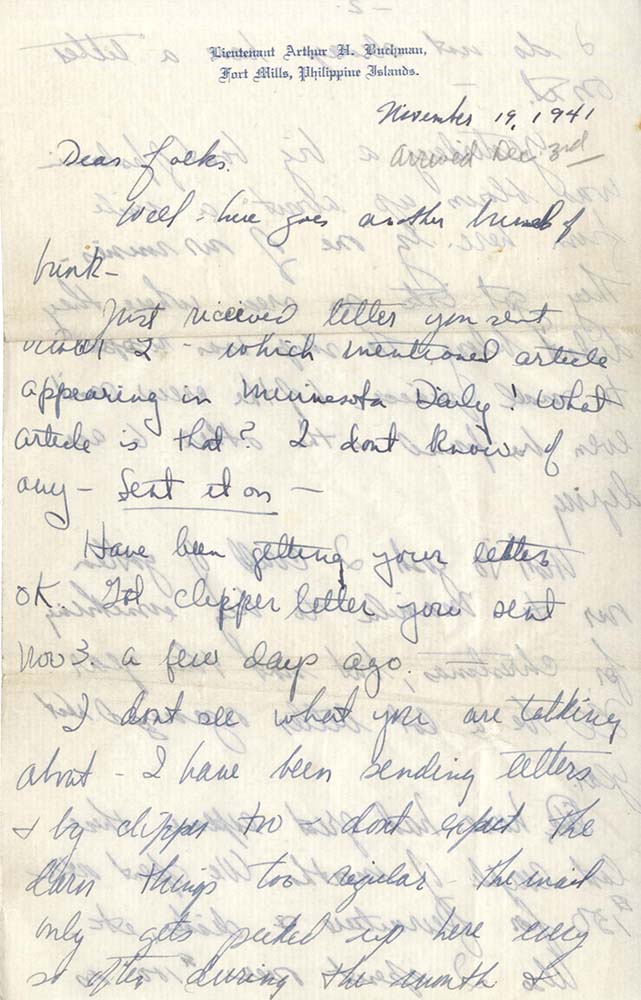 Lieutenant Arthur H. Buchman,
Fort Mills, Philippine Islands.
November 19, 1941
Arrived Dec. 3rd
Dear folks.
Well - here goes another bunch of
bunk -
Just received letter you sent
2 - which mentioned article
appearing in Minnesota Daily! What
article is that? I dont know of
any - Sent it on -
Have been getting your letters
OK. Got clipper letter you sent
Nov 3. a few days ago.
I dont see what you are talking
about - I have been sending letters
& by clipper too - dont expect the
darn things too regular - the mail
only gets picked up here every
so often during the month &